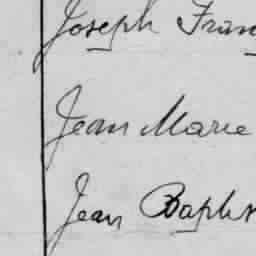 Joseph Fran
Jean Marie
Jean Baptis